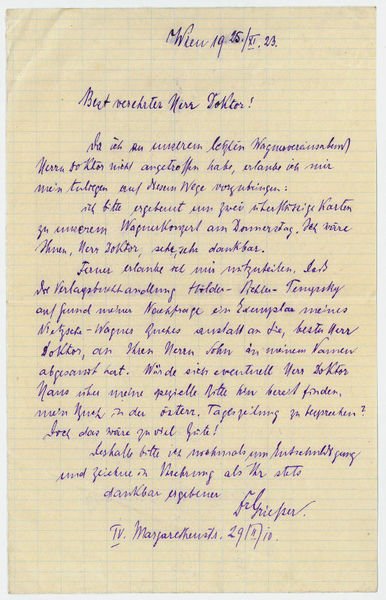 Wien 19 25/XI. 23.
Best verehrter Herr Doktor!
Da ich zu unserem letzten Wagnervereinsabend
Herrn Doktor nicht angetroffen habe, erlaube ich mir
mein Anliegen auf diesem Wege vorzubringen:
ich bitte ergebenst um zwei überflüssige Karten
zu unserem Wagnerkonzert am Donnerstag. Ich wäre
Ihnen, Herr Doktor, sehr, sehr dankbar.
Ferner erlaube ich mir mitzuteilen, daß
die Verlagsbuchhandlung Hölder-Pichler-Tempsky
auf Grund meiner Nachfrage ein Exemplar meines
Nietzsche-Wagner Buches anstatt an Sie, bester Herr
Doktor, an Ihren Herrn Sohn in meinem Namen
abgesandt hat. Würde sich eventuell Herr Doktor
Hans über meine spezielle Bitte hin bereit finden,
mein Buch in der österr. Tageszeitung zu besprechen?
Doch das wäre zu viel Güte!
Deshalb bitte ich nochmals um Entschuldigung
und zeichne in Verehrung als Ihr stets
dankbar ergebener
Dr Grießer.
IV. Margaretenstr. 29/II/10.